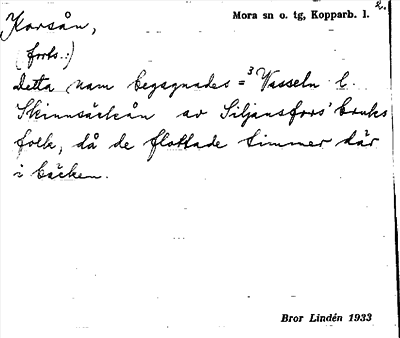 2.
Korsån, Mora sn o. tg, Kopparb. l.
(forts.:)
Detta namn begagnades = ³Vasseln l.
Skinnsäckån av Siljansfors' bruks
folk, då de flottade timmer där
i bäcken.
Bror Lindén 1933